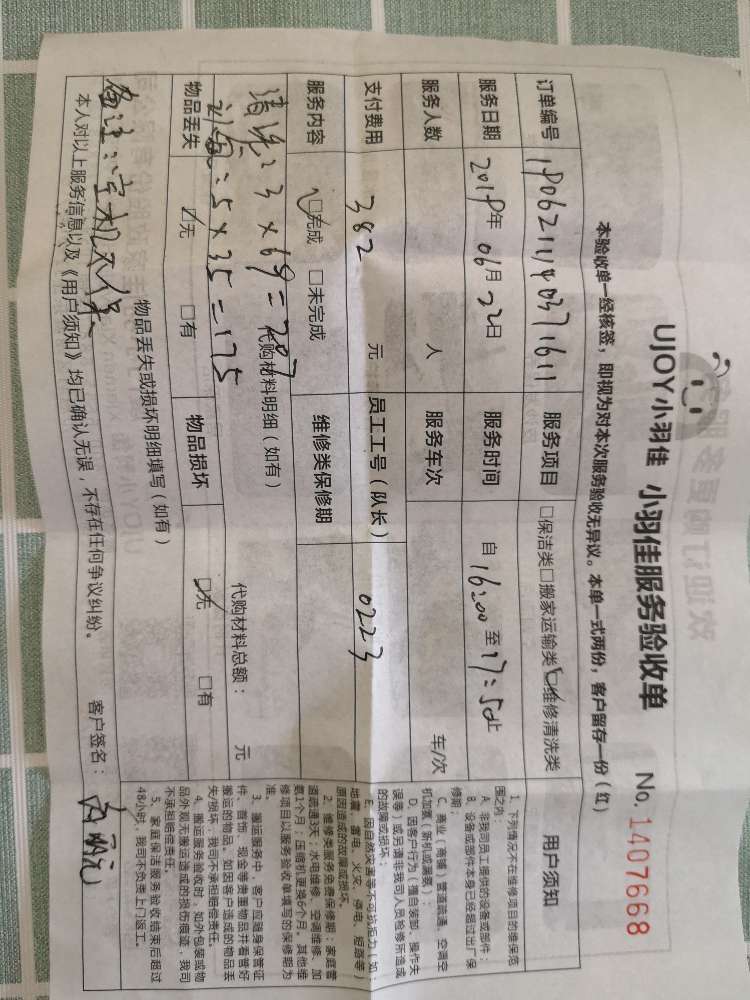 UJOY小羽佳 小羽佳服务验收单 No. 1407668
本验收单一经核签，即视为对本次服务验收无异议。本单一式两份，客户留存一份（红）
订单编号 服务项目 □保洁类□搬家运输类☑维修清洗类
服务日期 2019年06月22日 服务时间 自16:00至17:50止
服务人数 人 服务车次 车/次
支付费用 382 元 员工工号（队长） 0223
服务内容 ☑完成 □未完成 维修类保修期
清洗：3×69=207
代购材料明细（如有） 代购材料总额： 元
5×35=175
物品丢失 ☑无 □有 物品损坏 ☑无 □有
物品丢失或损坏明细填写（如有）
备注：
本人对以上服务信息以及《用户须知》均已确认无误，不存在任何争议纠纷。 客户签名：
用户须知
1、下列情况不在维修项目的维保范围之内：
A、非我司员工提供的设备或部件；
B、设备或部件本身已经超过出厂保修期；
C、商业（商铺）管道疏通、空调空机加氨（新机或漏氨）；
D、因客户行为（擅自装卸、操作失误等）或另请非我司人员检修所造成的故障或损坏；
E、因自然灾害等不可抗拒力（如：地震、雷电、火灾、停电、短路等）原因造成的故障或损坏。
2、维修类服务免费保修期：家庭管道疏通3天；水电维修、空调维修、加氨1个月；压缩机更换6个月。其他维修项目以服务验收单填写的保修期为准。
3、搬运服务中，客户应随身保管证件、首饰、现金等贵重物品并看管好搬运的物品。如因客户造成的物品丢失/损坏，我司不承担赔偿责任。
4、搬运服务验收时，如外包装或物品外观无搬运造成的损伤痕迹，我司不承担赔偿责任。
5、家庭保洁服务验收结束后超过48小时，我司不负责上门返工。